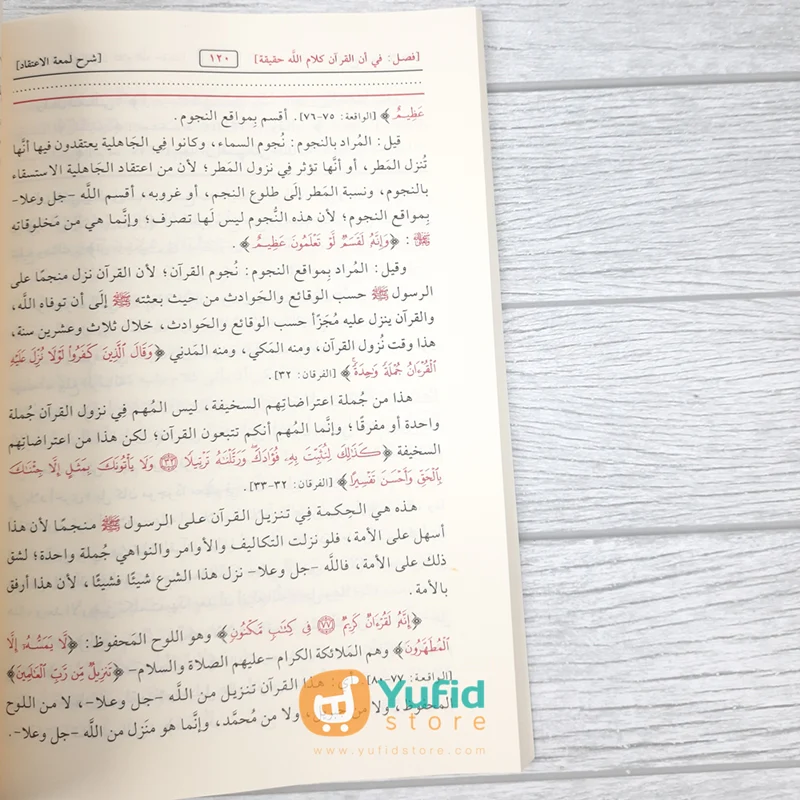 [فصل: في أن القرآن كلام اللَّه حقيقة] ١٢٠ [شرح لمعة الاعتقاد]
عَظِيمٌ ﴾ [الواقعة: ٧٥-٧٦]. أقسم بِمواقع النجوم.
قيل: المُراد بالنجوم: نُجوم السماء، وكانوا فِي الجَاهلية يعتقدون فيها أنَّها
تُنزل المَطر، أو أنَّها تؤثر فِي نزول المَطر؛ لأن من اعتقاد الجَاهلية الاستسقاء
بالنجوم، ونسبة المَطر إلَى طلوع النجم، أو غروبه، أقسم اللَّه -جل وعلا-
بِمواقع النجوم؛ لأن هذه النُّجوم ليس لَها تصرف؛ وإنَّما هي من مَخلوقاته
: ﴿وَإِنَّهُ لَقَسَمٌ لَّوْ تَعْلَمُونَ عَظِيمٌ ﴾.
وقيل: المُراد بِمواقع النجوم: نُجوم القرآن؛ لأن القرآن نزل منجمًا على
الرسول ﷺ حسب الوقائع والحَوادث من حيث بعثته ﷺ إلَى أن توفاه اللَّه،
والقرآن ينزل عليه مُجَزّأً حسب الوقائع والحَوادث، خلال ثلاث وعشرين سنة،
هذا وقت نُزول القرآن، ومنه المَكي، ومنه المَدني ﴿وَقَالَ الَّذِينَ كَفَرُوا لَوْلَا نُزِّلَ عَلَيْهِ
الْقُرْءَانُ جُمْلَةً وَٰحِدَةً ﴾ [الفرقان: ٣٢].
هذا من جُملة اعتراضاتِهم السخيفة، ليس المُهم فِي نزول القرآن جُملة
واحدة أو مفرقًا؛ وإنَّما المُهم أنكم تتبعون القرآن؛ لكن هذا من اعتراضاتِهم
السخيفة ﴿كَذَٰلِكَ لِنُثَبِّتَ بِهِۦ فُؤَادَكَ وَرَتَّلْنَٰهُ تَرْتِيلًا ٣٢ وَلَا يَأْتُونَكَ بِمَثَلٍ إِلَّا جِئْنَٰكَ
بِالْحَقِّ وَأَحْسَنَ تَفْسِيرًا﴾ [الفرقان: ٣٢-٣٣].
هذه هي الحِكمة فِي تنزيل القرآن على الرسول ﷺ منجمًا لأن هذا
أسهل على الأمة، فلو نزلت التكاليف والأوامر والنواهي جُملة واحدة؛ لشق
ذلك على الأمة، فاللَّه -جل وعلا- نزل هذا الشرع شيئًا فشيئًا، لأن هذا أرفق
بالأمة.
﴿إِنَّهُ لَقُرْءَانٌ كَرِيمٌ ٧٧ فِي كِتَٰبٍ مَّكْنُونٍ﴾ وهو اللوح المَحفوظ: ﴿لَّا يَمَسُّهُۥ إِلَّا
الْمُطَهَّرُونَ﴾ وهم المَلائكة الكرام -عليهم الصلاة والسلام- ﴿تَنزِيلٌ مِّن رَّبِّ الْعَٰلَمِينَ﴾
[الواقعة: ٧٧-٨٠] هذا القرآن تنزيل من اللَّه -جل وعلا-، لا من اللوح
المَحفوظ، ولا من جبريل، ولا من مُحمَّد، وإنَّما هو منَزل من اللَّه -جل وعلا-.
Yufid
store
www.yufidstore.com